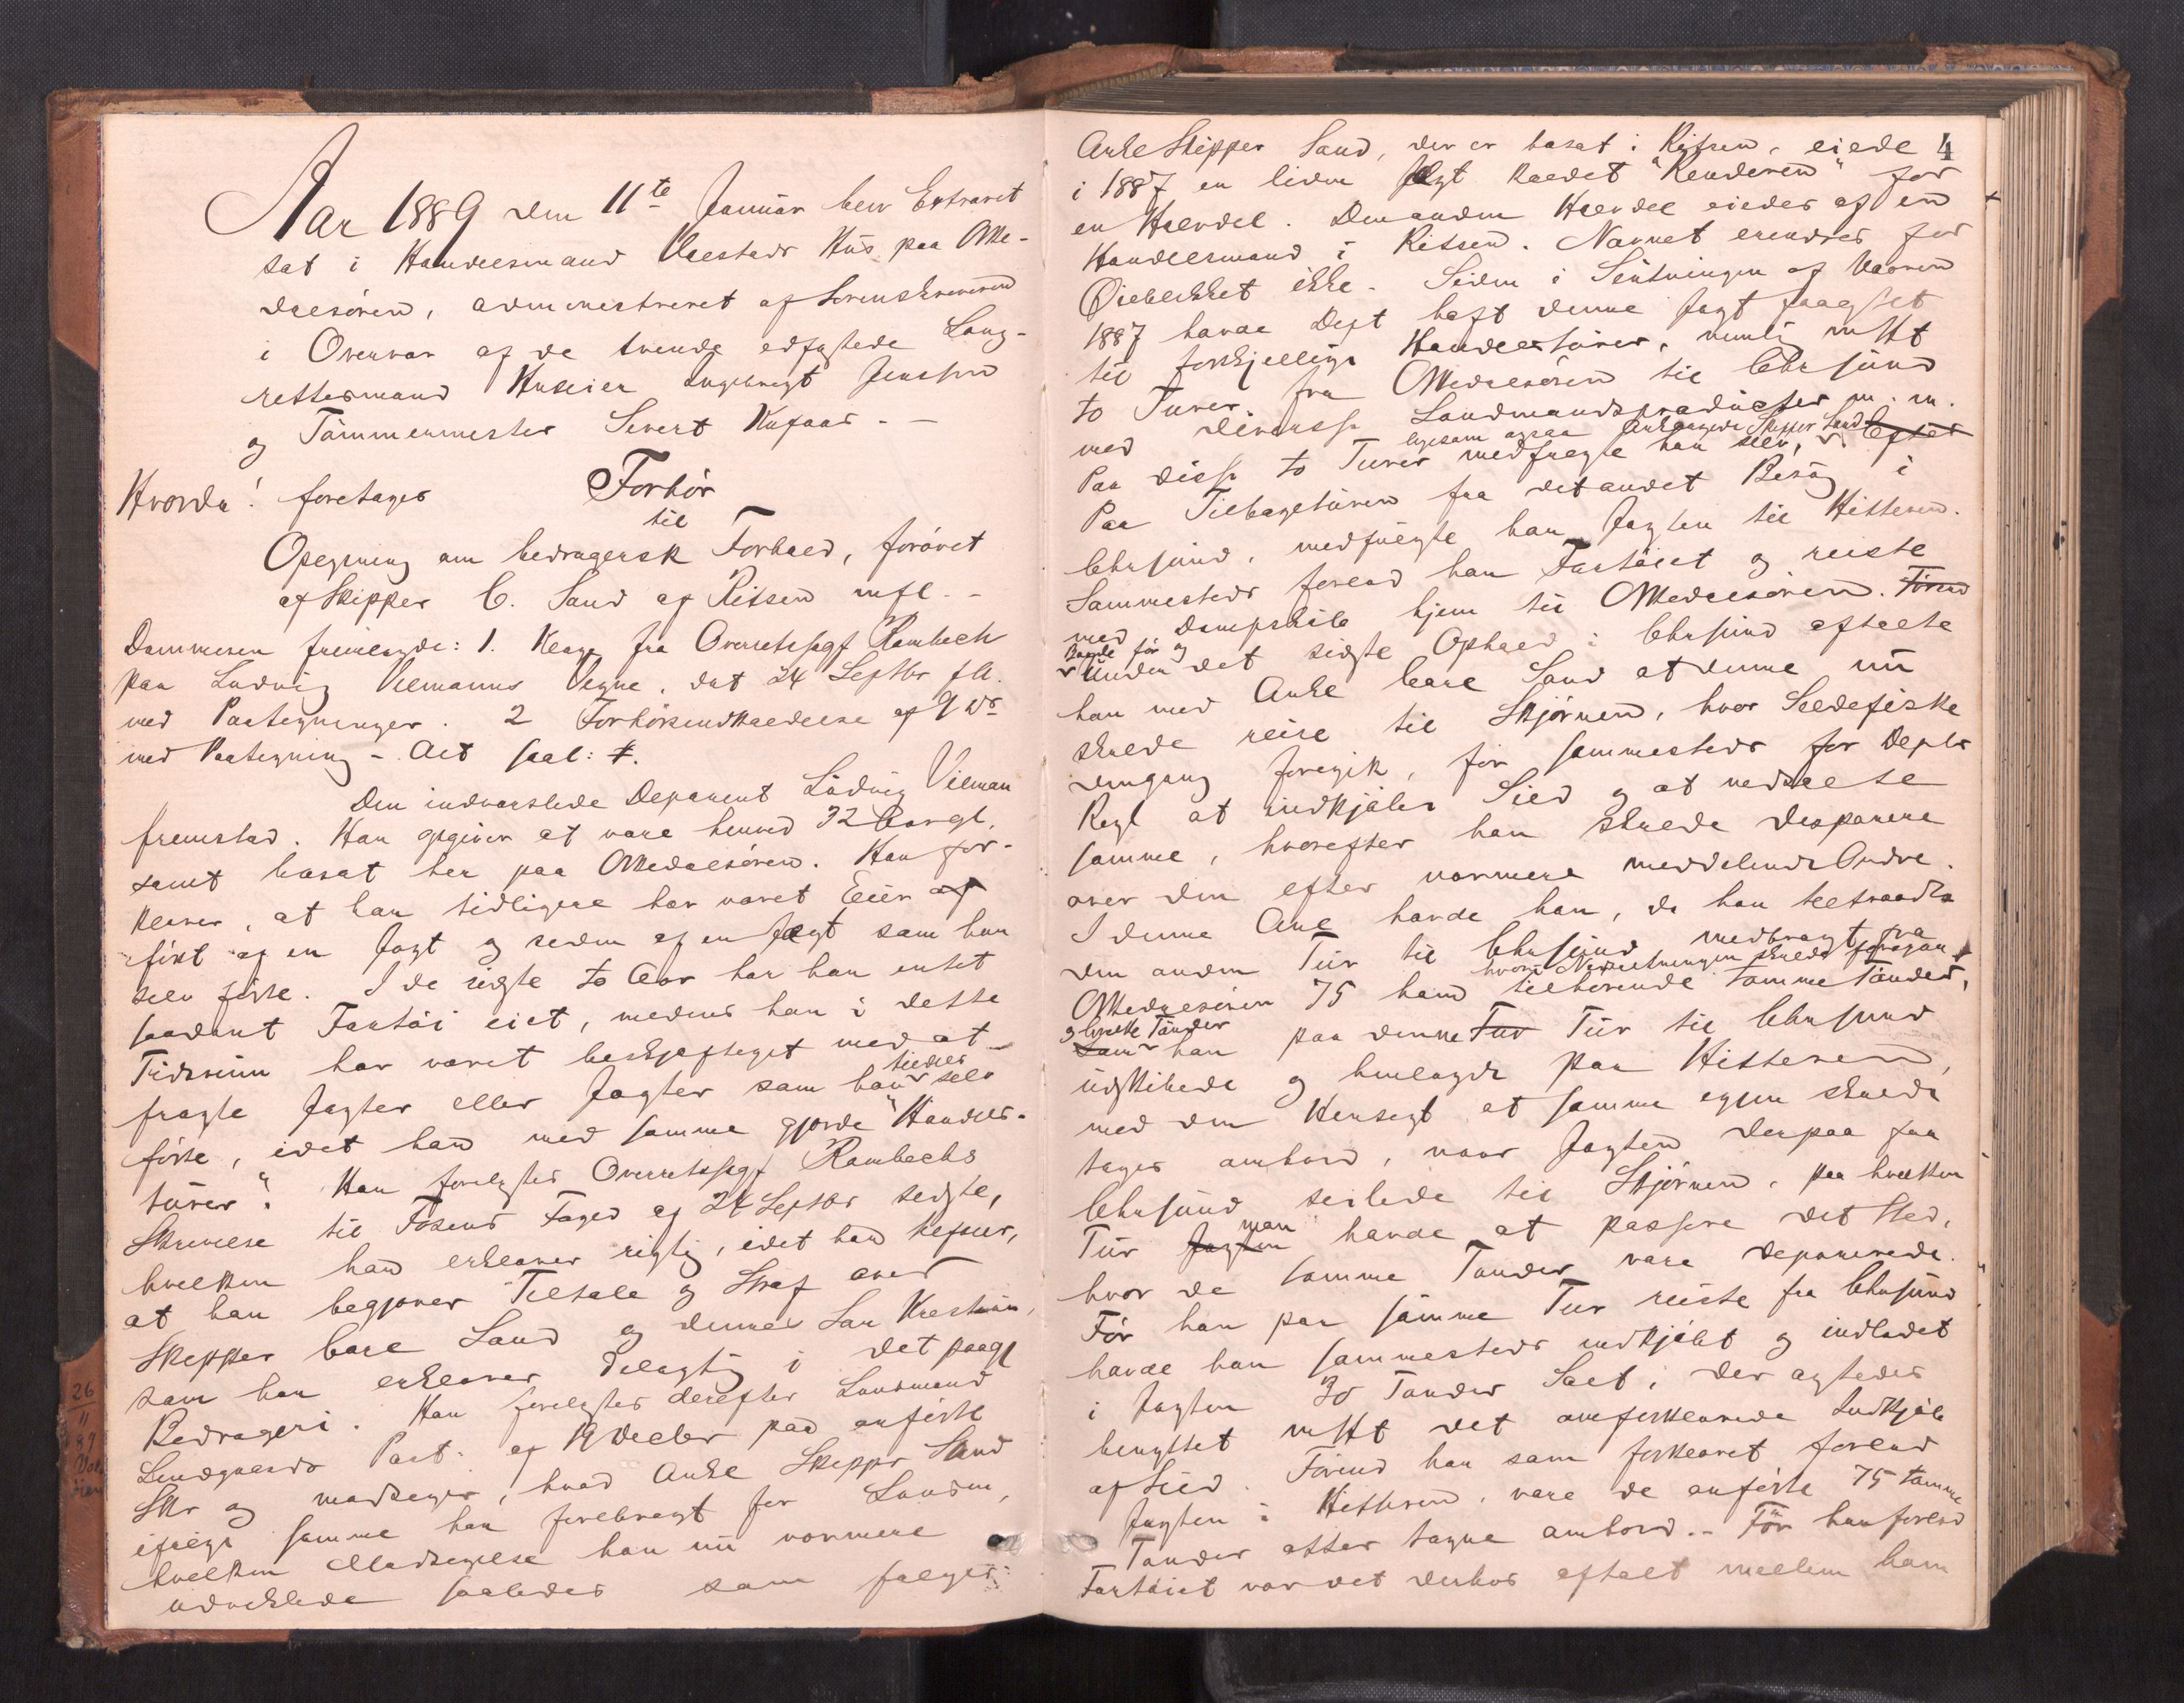 Aar 1889 den 11te Januar blev Extraret
sat i Handelsmand Vaestads Hus paa Me-
dalsören, administreret af Sorenskriveren
i Overvær af de tvende edfæstede Laug-
rettesmænd Huseier Ingebrigt Jenssen
og Tømmermester Sivert Kufaas. -
Hvorda! foretages Forhör
til
Opgning om bedragersk Forhold, forövet
af Skipper C. Sand af Rissen mfl. -
Dommeren fremlagde: 1. Klage fra Overretssagf Rambech
paa Ludvig Vilmanns Vegne, dat 24 Septbr f.A.
med Paategninger. 2 Forhörsindkaldelse af 9 ds
med Paategning - Alt saal:
Den indvarslede Deponent Ludvig Vilman
fremstod. Han opgiver at være henved 32 Aar gl,
samt bosat her paa Medalsören. Han for-
klarer, at han tidligere har været Eier af
först af en Jagt og siden af en Jægt som han
selv förte. I de sidste to Aar har han intet
saadant Fartöi eiet, medens han i dette
Tidsrum har været beskjæftiget med at
tildels
fragte Jagter eller Jægter som han selv
förte, idet han med samme gjorde "Handels-
türer". Han forelæstes Overretssagf Rambechs
Skrivelse til Fosens Foged af 24 Septbr sidste,
hvilken han erklærer rigtig, idet han tilföier,
at han begjærer Tiltale og Straf over
Skipper Carl Sand og dennes Søn Kristian,
som han erklærer delagtig i det paagj
Bedrageri. Han forelæstes derefter Lensmand
Lindgaards Paat. af 19 Decbr paa anförte
Skr og medgiver, hvad Ankl Skipper Sand
ifølge samme har forebragt for Lensm,
hvilken Modsigelse han nu nærmere
udviklede saaledes som følger:
4
Ankl Skipper Sand, der er bosat i Rissen, eiede
i 1887 en liden Jægt kaldet "Renderen" for
en Halvdel. Den anden Halvdel eiedes af en
Handelsmand i Rissen. Navnet erindres for
Øieblikket ikke. Siden i Slutningen af Vaaren
1887 havde Dept havt denne Jagt fragtet
til forskjellige Handelstürer, nemlig mstt
to Turer fra Medalsören til Chrsund
med diverse Landmandsproducter m. m.
ligesom ogsaa Anklagede Skipper Sand
Paa disse to Turer medfulgte han selv, Efter
Paa Tilbageturen fra det andet Besög i
Chrsund, medfulgte han Jagten til Hitteren.
Sammesteds forlod han Fartöiet og reiste
med Dampskib hjem til Medalsören. Förend
Baade för og
under det sidste Ophold i Chrsund aftalte
han med Ankl Carl Sand at denne nu
skulde reise til Skjörnen, hvor Sildefiske
dengang foregik, for sammesteds for Depts
Regl at indkjöbe Sild og at nedsalte
samme, hvorefter han skulde disponere
over den efter nærmere meddelende Ordre.
I denne Anl havde han, da han tiltraadte
den anden Tur til Chrsund, medbragt fra
hvori Nedsaltningen skulde foregaa
Medalsören 75 ham tilhörende tomme Tønder,
og hvilke Tønder
som han paa denne Tur Tur til Chrsund
udskibede og henlagde paa Hitteren,
med den Hensigt at samme igjen skulde
tages ombord, naar Jagten derpaa fra
Chrsund seilede til Skjörnen, paa hvilken
man
Tur Jagten havde at passere det Sted,
hvor de tomme Tønder vare deponerede.
För han paa samme Tur reiste fra Chrsund
havde han sammesteds indkjöbt og indladet
i Jagten 30 Tønder Salt, der agtedes
benyttet mstt det omforklarede Indkjöb
af Sild. Förend han som forklaret forlod
Jagten i Hitteren, vare de anförte 75 tomme
Tønder atter tagne ombord. - För han forlod
Fartöiet var det derhos aftalt mellem ham
26
11
89